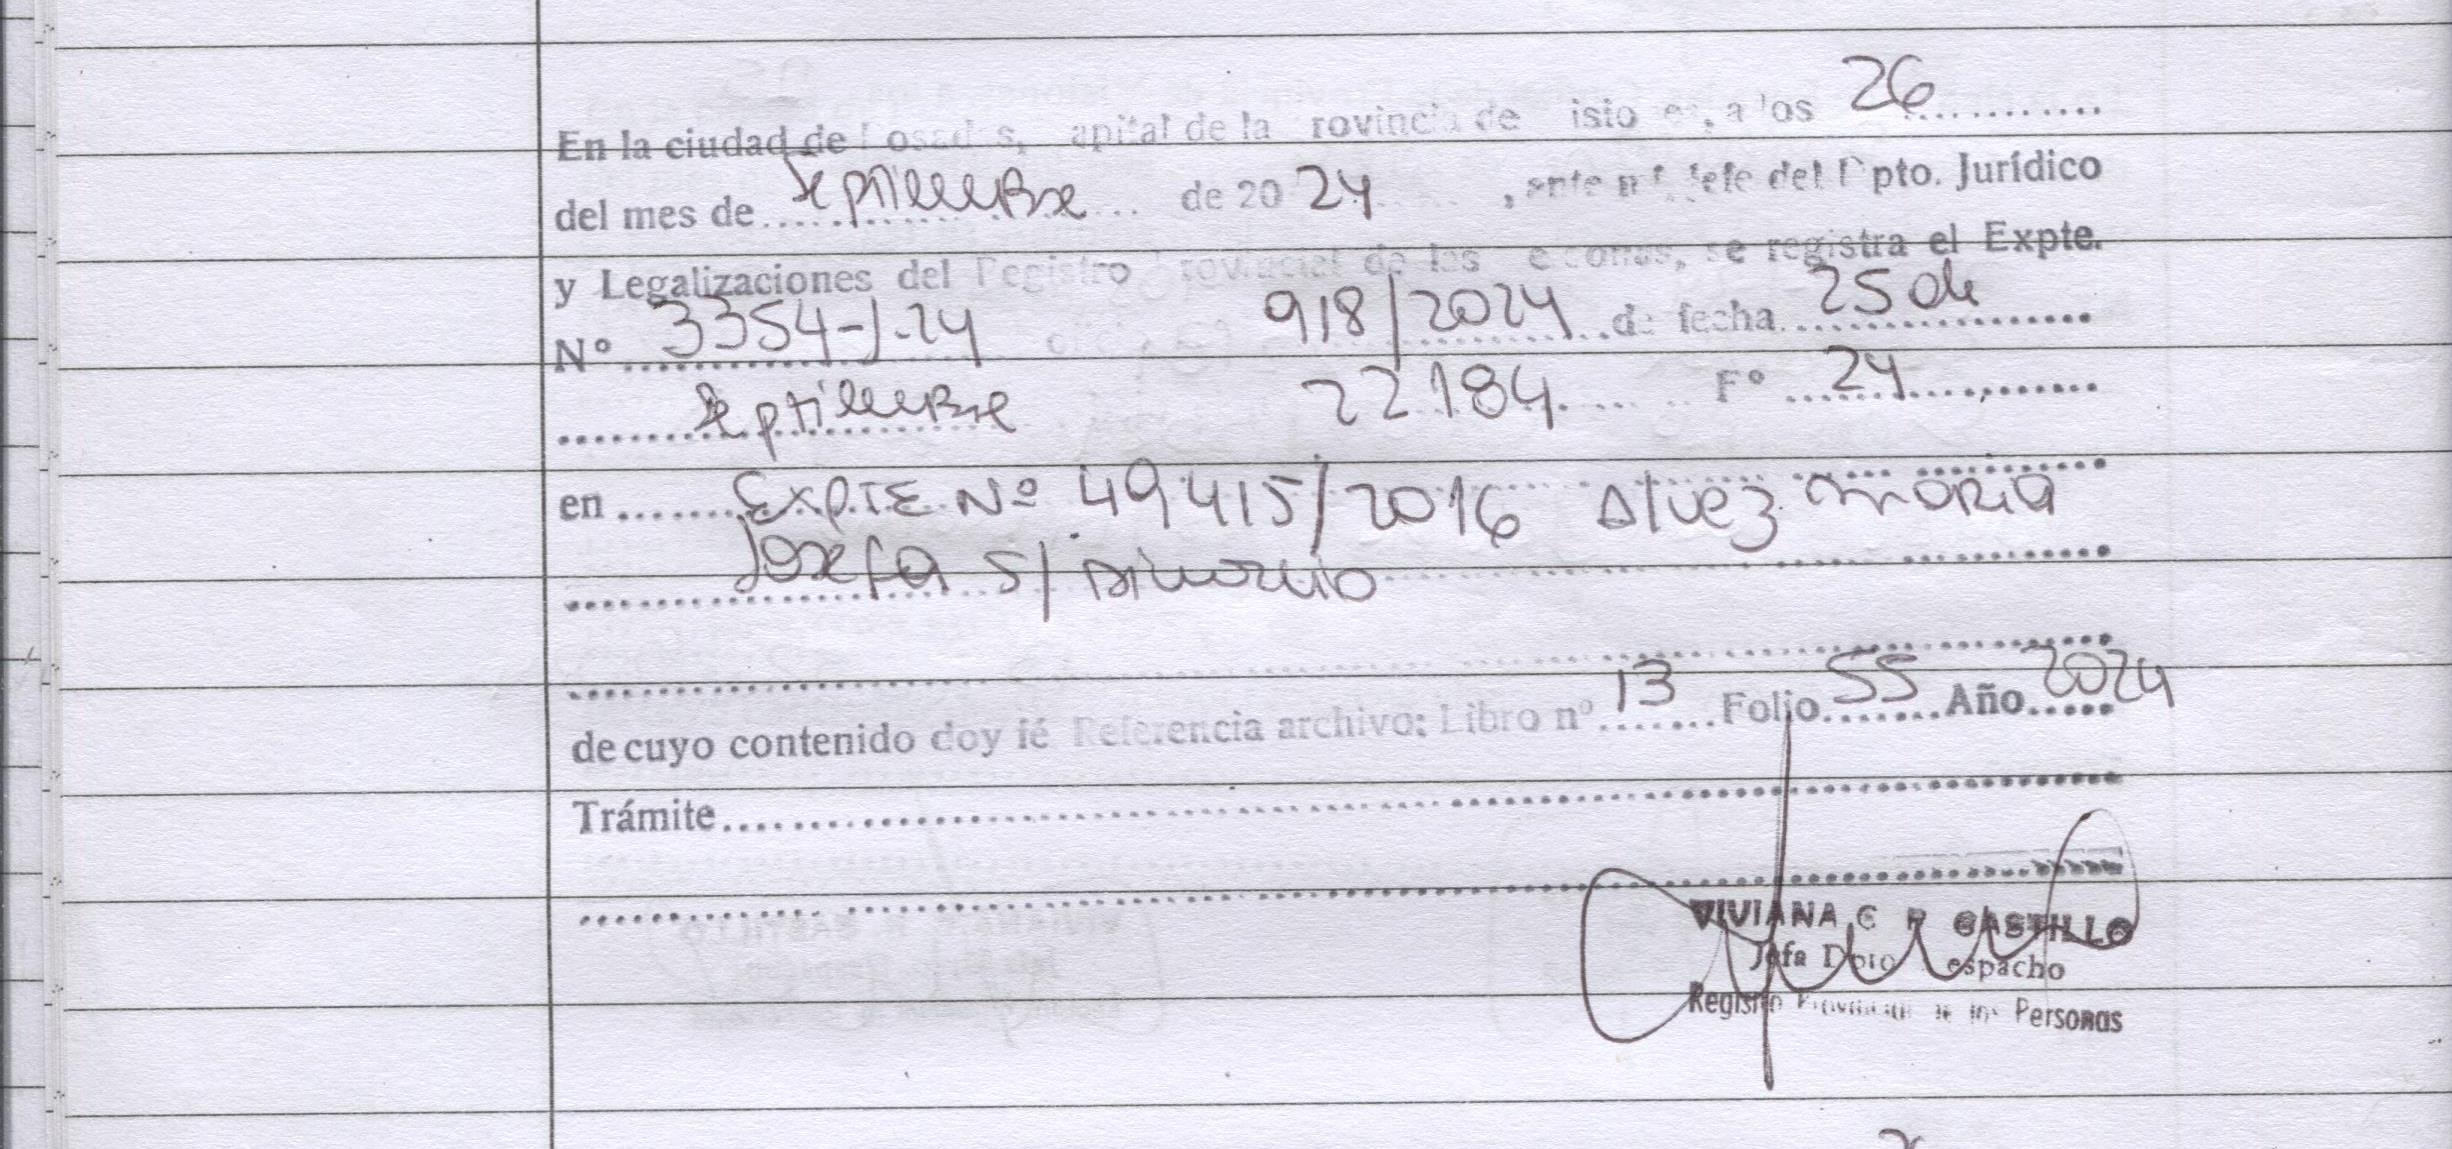 En la ciudad de Posadas, capital de la rovincia de isio es, a los 26
del mes de septiembre de 2024, ante mí, Jefe del Dpto. Jurídico
y Legalizaciones del Registro Provincial de las e sonas, se registra el Expte.
Nº 3354-J-24 918/2024 de fecha 25 de
septiembre 22184 Fº 24
en EXPTE Nº 49415/2016 Alvez Maria
Josefa s/ Divorcio
de cuyo contenido doy fé Referencia archivo: Libro nº 13 Folio 55 Año 2024
Trámite
VIVIANA C R CASTILLO
Jefa Dpto espacho
Registro Provincial de las Personas